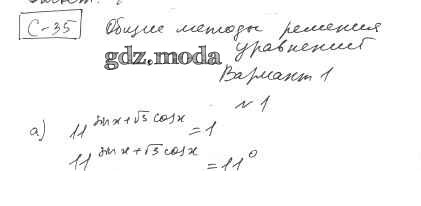 С-35 Общие методы решения
уравнений
gdz.moda
Вариант 1
№ 1
а) 11^(sin x + √3 cos x) = 1
11^(sin x + √3 cos x) = 11^0